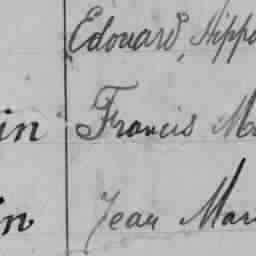 Edouard, Hippo
in Francis Ma
in Jean Mari